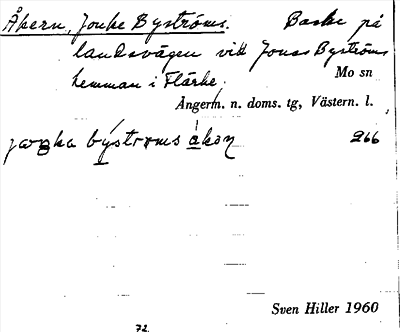 Åkern, Jonke Byströms. Backe på
landsvägen vid Jonas Byströms
hemman i Flärke.
Mo sn
Ångerm. n. doms. tg, Västern. l.
byströms åkan
266
Sven Hiller 1960
72.